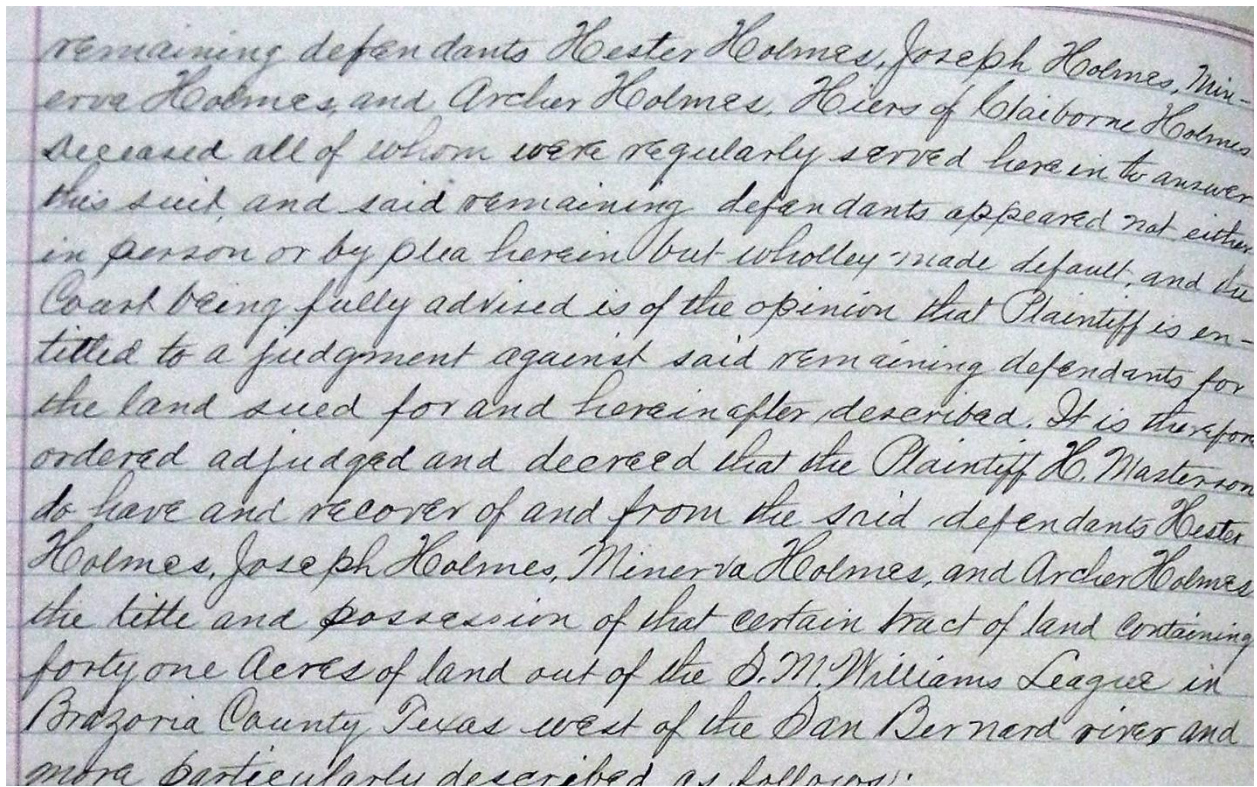 remaining defendants Hester Holmes, Joseph Holmes, Min-
erva Holmes, and Archer Holmes, Hiers of Claiborne Holmes
deceased all of whom were regularly served herein to answer
this suit, and said remaining defendants appeared not either
in person or by plea herein but wholley made default, and the
Court being fully advised is of the opinion that Plaintiff is en-
titled to a judgment against said remaining defendants for
the land sued for and hereinafter described. It is therefore
ordered adjudged and decreed that the Plaintiff H. Masterson
do have and recover of and from the said defendants Hester
Holmes, Joseph Holmes, Minerva Holmes, and Archer Holmes
the title and possession of that certain tract of land containing
forty one Acres of land out of the S. M. Williams League in
Brazoria County Texas west of the San Bernard river and
more particularly described as follows: